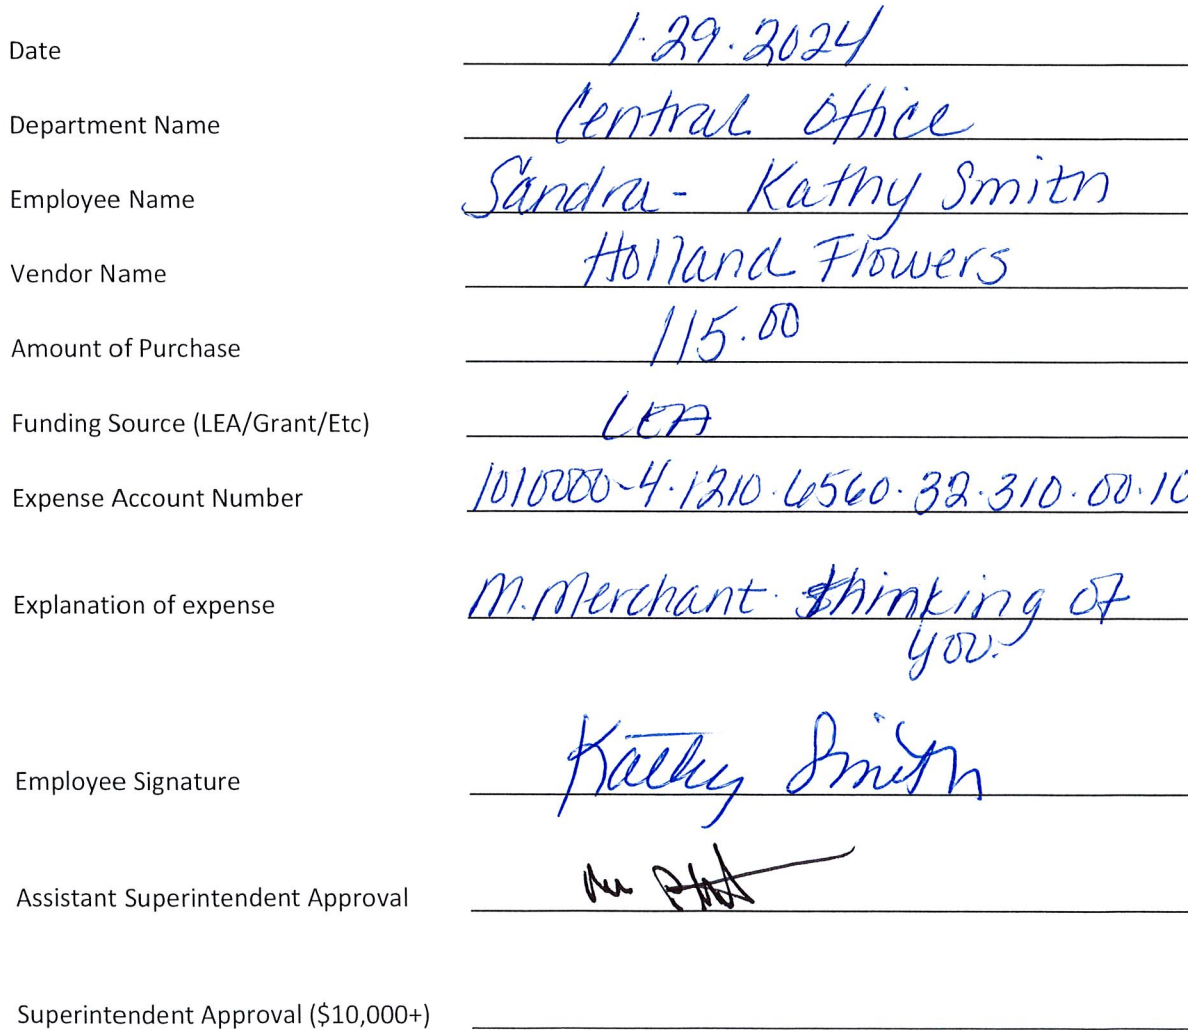 Date 1·29·2024
Department Name Central Office
Employee Name Sandra - Kathy Smith
Vendor Name Holland Flowers
Amount of Purchase 115.00
Funding Source (LEA/Grant/Etc) LEA
Expense Account Number 1010000-4·1210·6560·32·310·00·10
Explanation of expense M. Merchant · thinking of
you.
Employee Signature Kathy Smith
Assistant Superintendent Approval
Superintendent Approval ($10,000+)